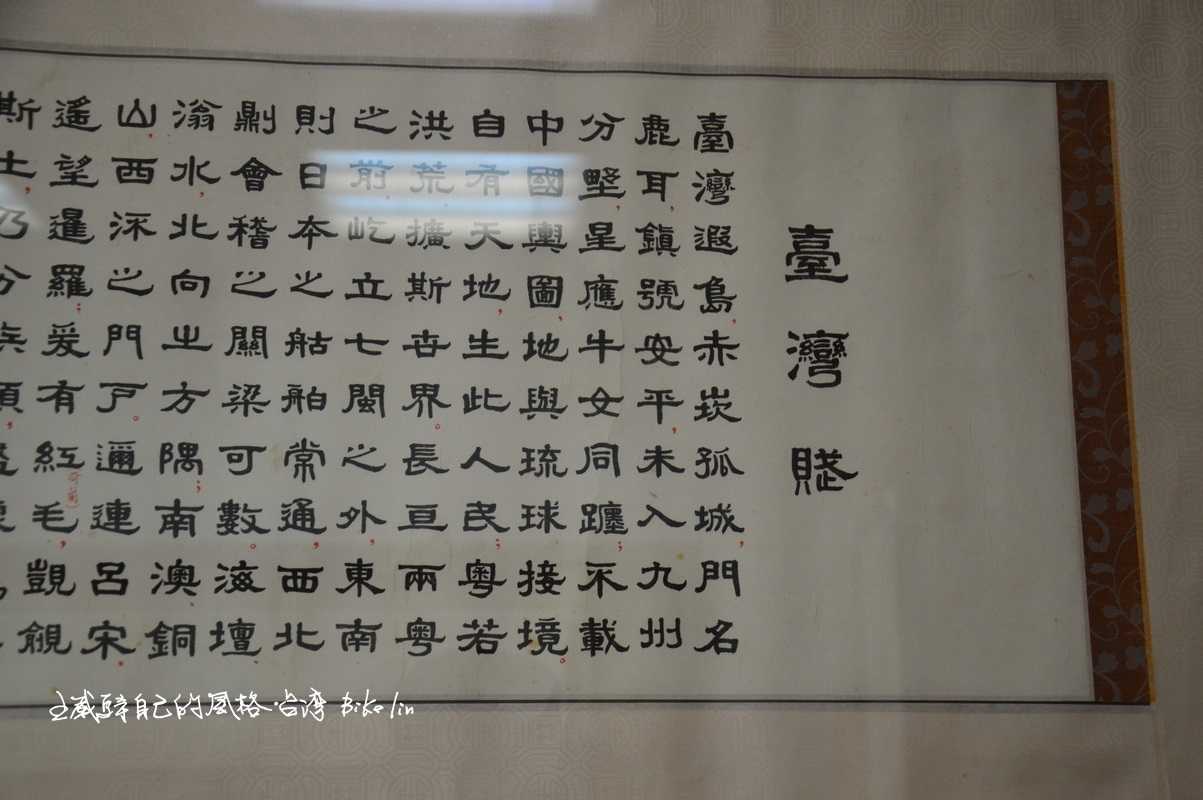 臺灣賦
臺灣遐島,赤崁孤城,門名
鹿耳,鎮號安平,未入九州
分墅,星應牛女同躔;不載
中國輿圖,地與琉球接境。
自有天地,生此人民;粵若
洪荒擴斯世界。長亘兩粵
之前,屹立七閩之外,東南
則日本之舳舶常通,西北
則會稽之關梁可數。海壇
滃水,北向之方隅;南澳銅
山,西深之門戶。邇連呂宋,
遙望暹羅;爰有紅毛,覬覦
斯土,乃分
自己的風格.台湾 Bike lin